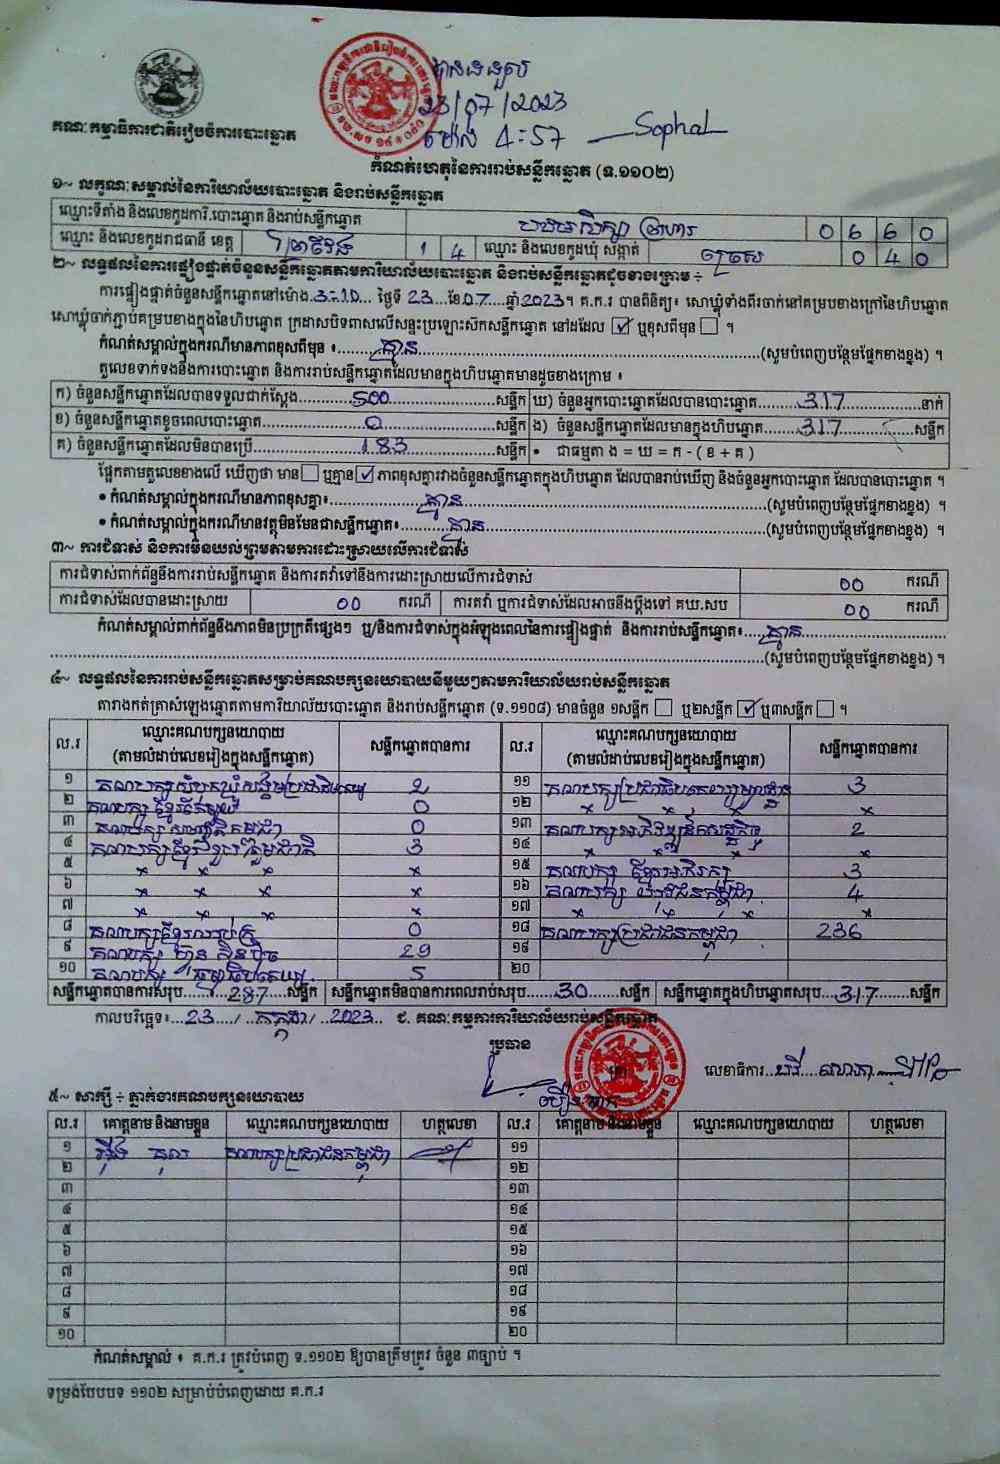 បានទទួល
23/07/2023
ម៉ោង 4:57 Sophal
គណៈកម្មាធិការជាតិរៀបចំការបោះឆ្នោត
កំណត់ហេតុនៃការរាប់សន្លឹកឆ្នោត (ទ.១១០២)
១~ លក្ខណៈសម្គាល់នៃការិយាល័យបោះឆ្នោត និងរាប់សន្លឹកឆ្នោត
ឈ្មោះទីតាំង និងលេខកូដការិ.បោះឆ្នោត និងរាប់សន្លឹកឆ្នោត 0 6 6 0
ឈ្មោះ និងលេខកូដរាជធានី ខេត្ត ព្រៃវែង 1 4 ឈ្មោះ និងលេខកូដឃុំ សង្កាត់ 0 4 0
២~ លទ្ធផលនៃការផ្ទៀងផ្ទាត់ចំនួនសន្លឹកឆ្នោតតាមការិយាល័យបោះឆ្នោត និងរាប់សន្លឹកឆ្នោតដូចខាងក្រោម ÷
ការផ្ទៀងផ្ទាត់ចំនួនសន្លឹកឆ្នោតនៅម៉ោង 3:10 ថ្ងៃទី 23 ខែ 07 ឆ្នាំ 2023។ គ.ក.រ បានពិនិត្យ៖ សោឃ្លុំទាំងពីរចាក់នៅគម្របខាងក្រៅនៃហិបឆ្នោត
សោឃ្លុំចាក់ភ្ជាប់គម្របខាងក្នុងនៃហិបឆ្នោត ក្រដាសបិទពាសលើសន្ទះប្រឡោះស៊កសន្លឹកឆ្នោត នៅដដែល ☑ ឬខុសពីមុន ☐ ។
កំណត់សម្គាល់ក្នុងករណីមានភាពខុសពីមុន ៖ គ្មាន (សូមបំពេញបន្ថែមផ្នែកខាងខ្នង) ។
តួលេខទាក់ទងនឹងការបោះឆ្នោត និងការរាប់សន្លឹកឆ្នោតដែលមានក្នុងហិបឆ្នោតមានដូចខាងក្រោម ៖
ក) ចំនួនសន្លឹកឆ្នោតដែលបានទទួលជាក់ស្តែង 500 សន្លឹក ឃ) ចំនួនអ្នកបោះឆ្នោតដែលបានបោះឆ្នោត 317 នាក់
ខ) ចំនួនសន្លឹកឆ្នោតខូចពេលបោះឆ្នោត 0 សន្លឹក ង) ចំនួនសន្លឹកឆ្នោតដែលមានក្នុងហិបឆ្នោត 317 សន្លឹក
គ) ចំនួនសន្លឹកឆ្នោតដែលមិនបានប្រើ 183 សន្លឹក • ជាធម្មតា ង = ឃ = ក - ( ខ + គ )
ផ្អែកតាមតួលេខខាងលើ ឃើញថា មាន ☐ ឬគ្មាន ☑ ភាពខុសគ្នារវាងចំនួនសន្លឹកឆ្នោតក្នុងហិបឆ្នោត ដែលបានរាប់ឃើញ និងចំនួនអ្នកបោះឆ្នោត ដែលបានបោះឆ្នោត ។
• កំណត់សម្គាល់ក្នុងករណីមានភាពខុសគ្នា៖ គ្មាន (សូមបំពេញបន្ថែមផ្នែកខាងខ្នង) ។
• កំណត់សម្គាល់ក្នុងករណីមានវត្ថុមិនមែនជាសន្លឹកឆ្នោត៖ គ្មាន (សូមបំពេញបន្ថែមផ្នែកខាងខ្នង) ។
៣~ ការជំទាស់ និងការមិនយល់ព្រមតាមការដោះស្រាយលើការជំទាស់
ការជំទាស់ពាក់ព័ន្ធនឹងការរាប់សន្លឹកឆ្នោត និងការតវ៉ាទៅនឹងការដោះស្រាយលើការជំទាស់ 00 ករណី
ការជំទាស់ដែលបានដោះស្រាយ 00 ករណី ការតវ៉ា ឬការជំទាស់ដែលអាចនឹងប្តឹងទៅ គឃ.សប 00 ករណី
កំណត់សម្គាល់ពាក់ព័ន្ធនឹងភាពមិនប្រក្រតីផ្សេងៗ ឬ/និងការជំទាស់ក្នុងអំឡុងពេលនៃការផ្ទៀងផ្ទាត់ និងការរាប់សន្លឹកឆ្នោត៖ គ្មាន
(សូមបំពេញបន្ថែមផ្នែកខាងខ្នង) ។
៤~ លទ្ធផលនៃការរាប់សន្លឹកឆ្នោតសម្រាប់គណបក្សនយោបាយនីមួយៗតាមការិយាល័យរាប់សន្លឹកឆ្នោត
តារាងកត់ត្រាសំឡេងឆ្នោតតាមការិយាល័យបោះឆ្នោត និងរាប់សន្លឹកឆ្នោត (ទ.១១០៨) មានចំនួន ១សន្លឹក ☐ ឬ២សន្លឹក ☑ ឬ៣សន្លឹក ☐ ។
ល.រ ឈ្មោះគណបក្សនយោបាយ (តាមលំដាប់លេខរៀងក្នុងសន្លឹកឆ្នោត) សន្លឹកឆ្នោតបានការ ល.រ ឈ្មោះគណបក្សនយោបាយ (តាមលំដាប់លេខរៀងក្នុងសន្លឹកឆ្នោត) សន្លឹកឆ្នោតបានការ
១ គណបក្សសំបុកឃ្មុំសង្គមប្រជាធិបតេយ្យ 2 ១១ 3
២ គណបក្ស ខ្មែរតែមួយ 0 ១២ × × ×
៣ គណបក្ស 0 ១៣ 2
៤ គណបក្សខ្មែររួបរួមជាតិ 3 ១៤ × × ×
៥ × × × × ១៥ គណបក្ស ខ្មែរអភិរក្ស 3
៦ × × × × ១៦ គណបក្ស យុវជនកម្ពុជា 4
៧ × × × × ១៧ × × ×
៨ គណបក្សខ្មែរឈប់ក្រ 0 ១៨ គណបក្សប្រជាជនកម្ពុជា 236
៩ គណបក្ស ហ៊្វុនស៊ិនប៉ិច 29 ១៩
១០ គណបក្ស ធម្មាធិបតេយ្យ 5 ២០
សន្លឹកឆ្នោតបានការសរុប 287 សន្លឹក សន្លឹកឆ្នោតមិនបានការពេលរាប់សរុប 30 សន្លឹក សន្លឹកឆ្នោតក្នុងហិបឆ្នោតសរុប 317 សន្លឹក
កាលបរិច្ឆេទ៖ 23 / កក្កដា / 2023 ជ. គណៈកម្មការការិយាល័យរាប់សន្លឹកឆ្នោត
ប្រធាន
លេខាធិការ
៥~ សាក្សី ÷ ភ្នាក់ងារគណបក្សនយោបាយ
ល.រ គោត្តនាម និងនាមខ្លួន ឈ្មោះគណបក្សនយោបាយ ហត្ថលេខា ល.រ គោត្តនាម និងនាមខ្លួន ឈ្មោះគណបក្សនយោបាយ ហត្ថលេខា
១ គណបក្សប្រជាជនកម្ពុជា ១១
២ ១២
៣ ១៣
៤ ១៤
៥ ១៥
៦ ១៦
៧ ១៧
៨ ១៨
៩ ១៩
១០ ២០
កំណត់សម្គាល់ ៖ គ.ក.រ ត្រូវបំពេញ ទ.១១០២ ឱ្យបានត្រឹមត្រូវ ចំនួន ៣ច្បាប់ ។
ទម្រង់បែបបទ ១១០២ សម្រាប់បំពេញដោយ គ.ក.រ